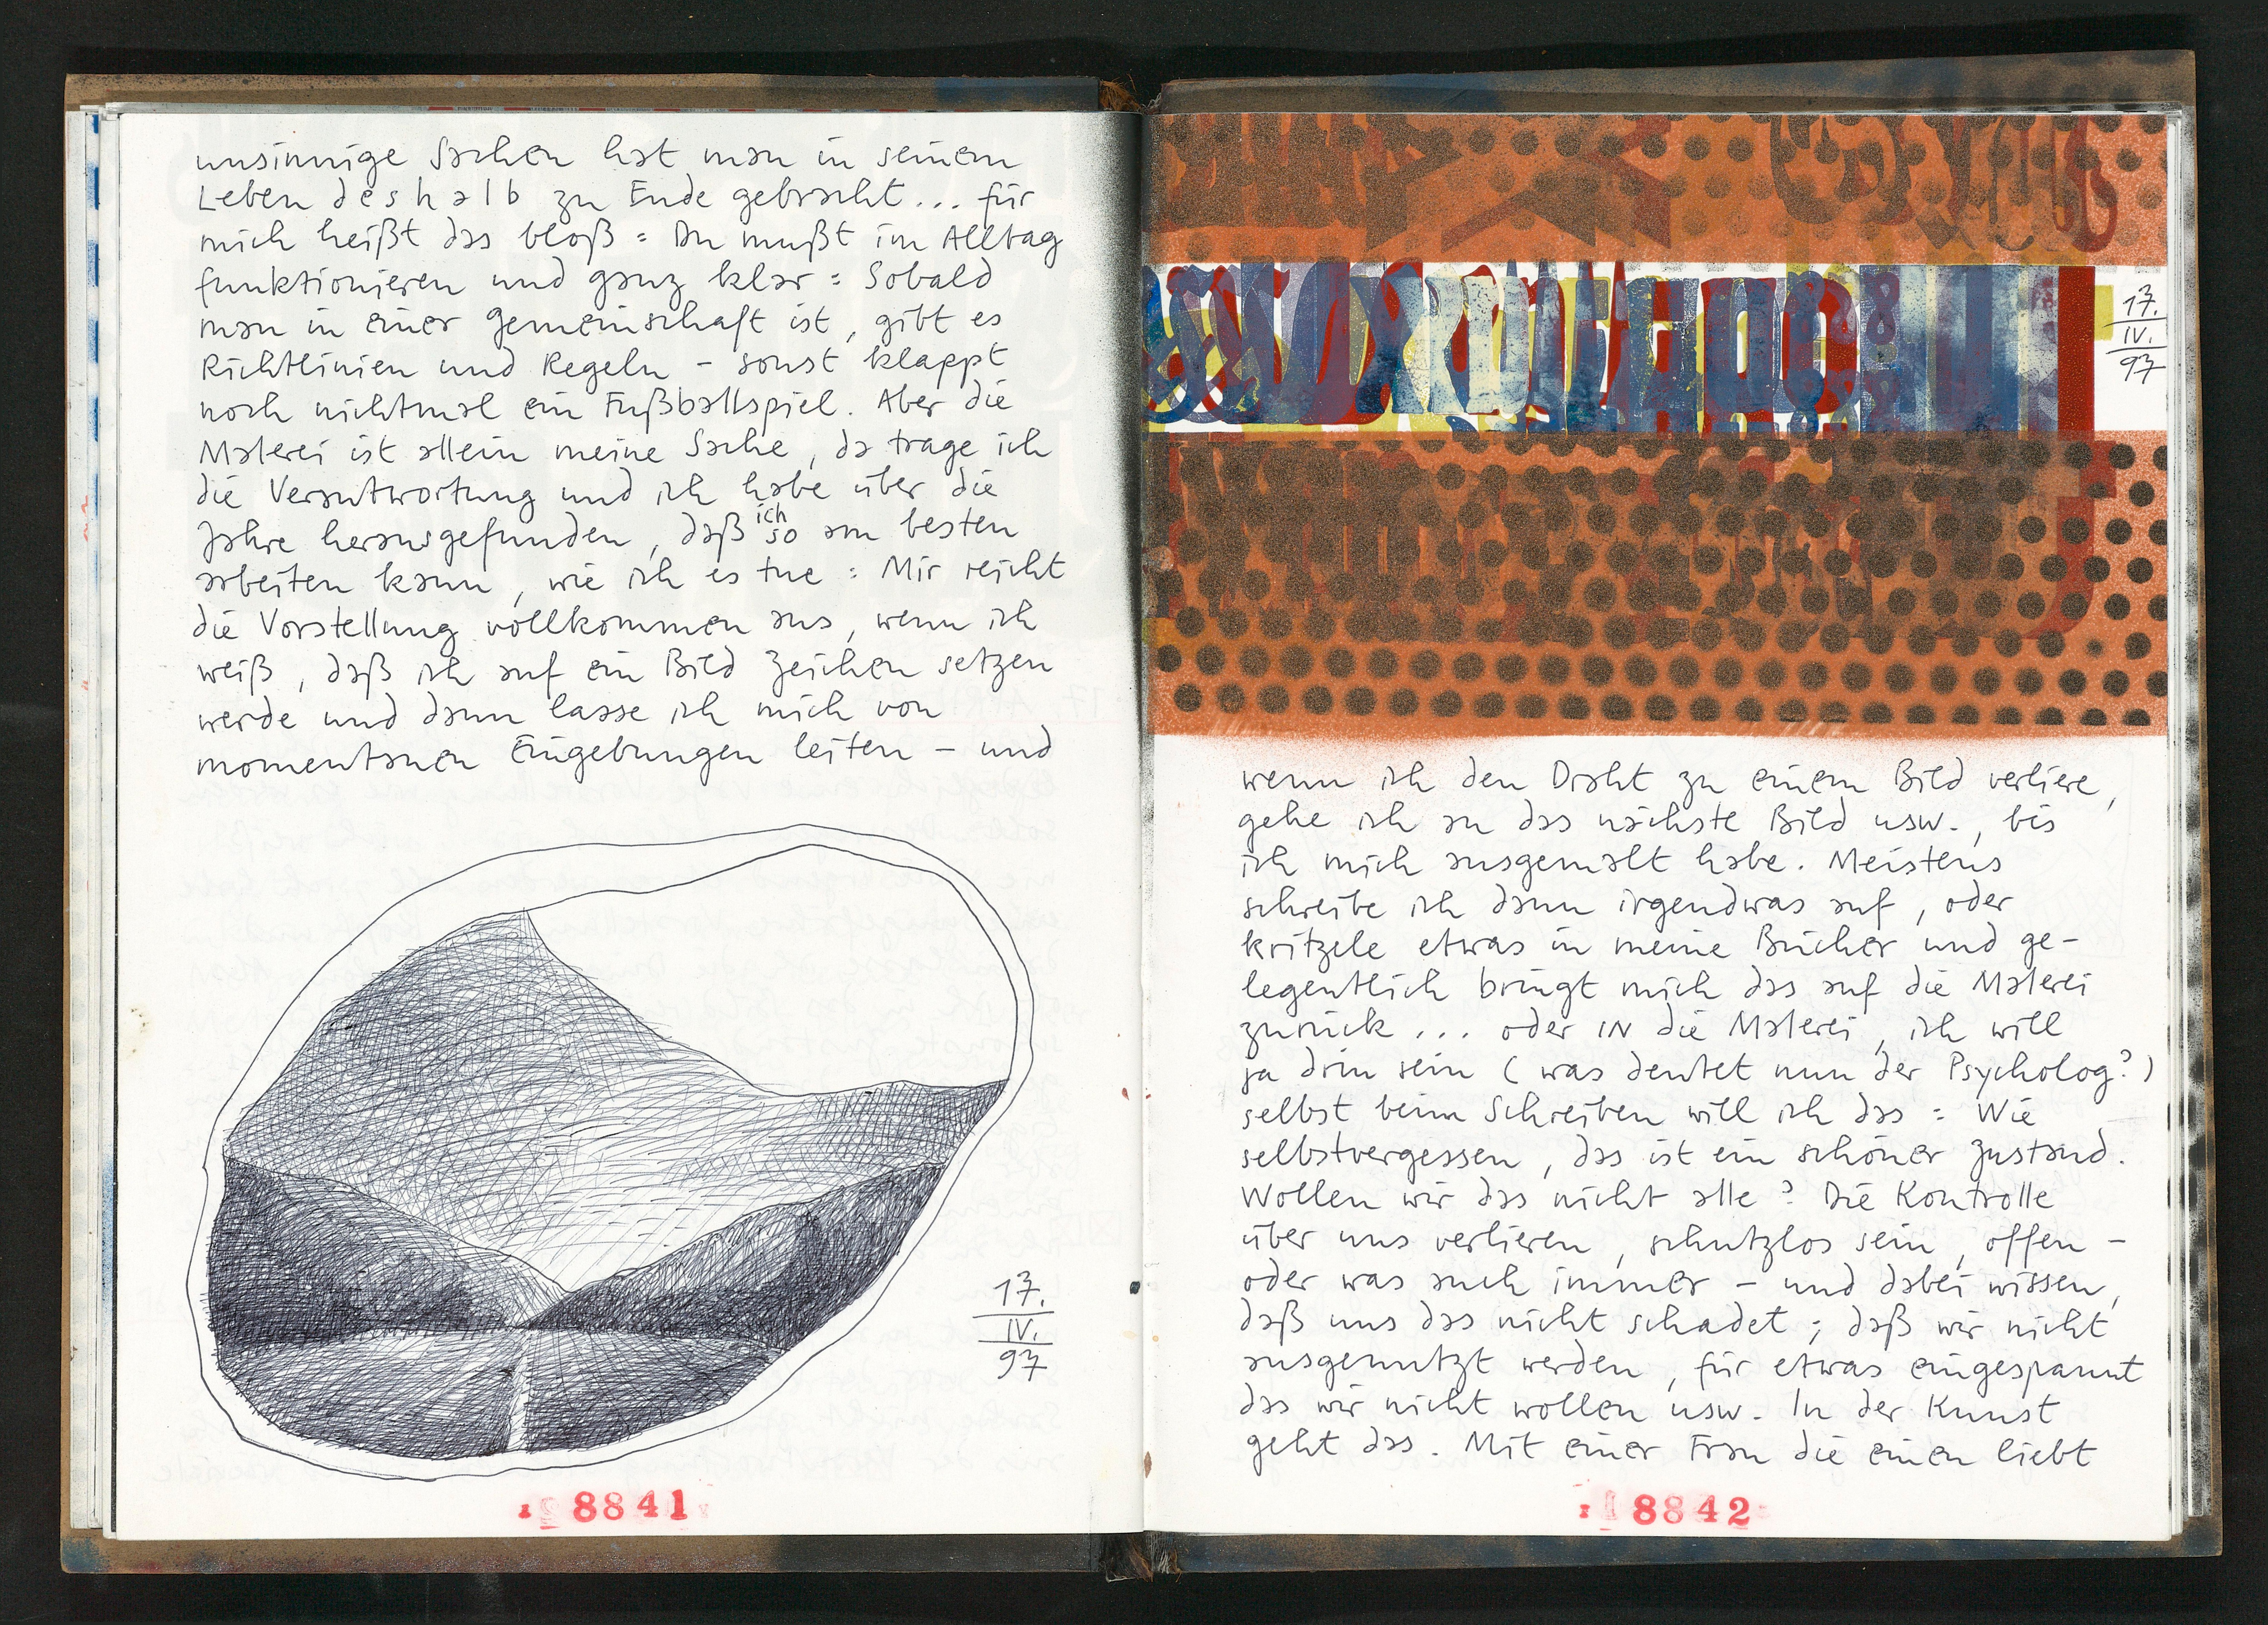 unsinnige Sachen hat man in seinem
Leben deshalb zu Ende gebracht... für
mich heißt das bloß: Du mußt im Alltag
funktionieren und ganz klar: Sobald
man in einer Gemeinschaft ist, gibt es
Richtlinien und Regeln – sonst klappt
noch nichtmal ein Fußballspiel. Aber die
Malerei ist allein meine Sache, da trage ich
die Verantwortung und ich habe über die
Jahre herausgefunden, daß ich so am besten
arbeiten kann, wie ich es tue: Mir reicht
die Vorstellung vollkommen aus, wenn ich
weiß, daß ich auf ein Bild Zeichen setzen
werde und dann lasse ich mich von
momentanen Eingebungen leiten – und
17.
IV.
97
8841
17.
IV.
97
wenn ich den Draht zu einem Bild verliere,
gehe ich an das nächste Bild usw., bis
ich mich ausgemalt habe. Meistens
schreibe ich dann irgendwas auf, oder
kritzele etwas in meine Bücher und ge-
legentlich bringt mich das auf die Malerei
zurück... oder IN die Malerei, ich will
ja drin sein (was deutet nun der Psycholog?)
selbst beim Schreiben will ich das: Wie
selbstvergessen, das ist ein schöner Zustand.
Wollen wir das nicht alle? Die Kontrolle
über uns verlieren, schutzlos sein, offen –
oder was auch immer – und dabei wissen,
daß uns das nicht schadet; daß wir nicht
ausgenutzt werden, für etwas eingespannt
das wir nicht wollen usw. In der Kunst
geht das. Mit einer Frau die einen liebt
8842